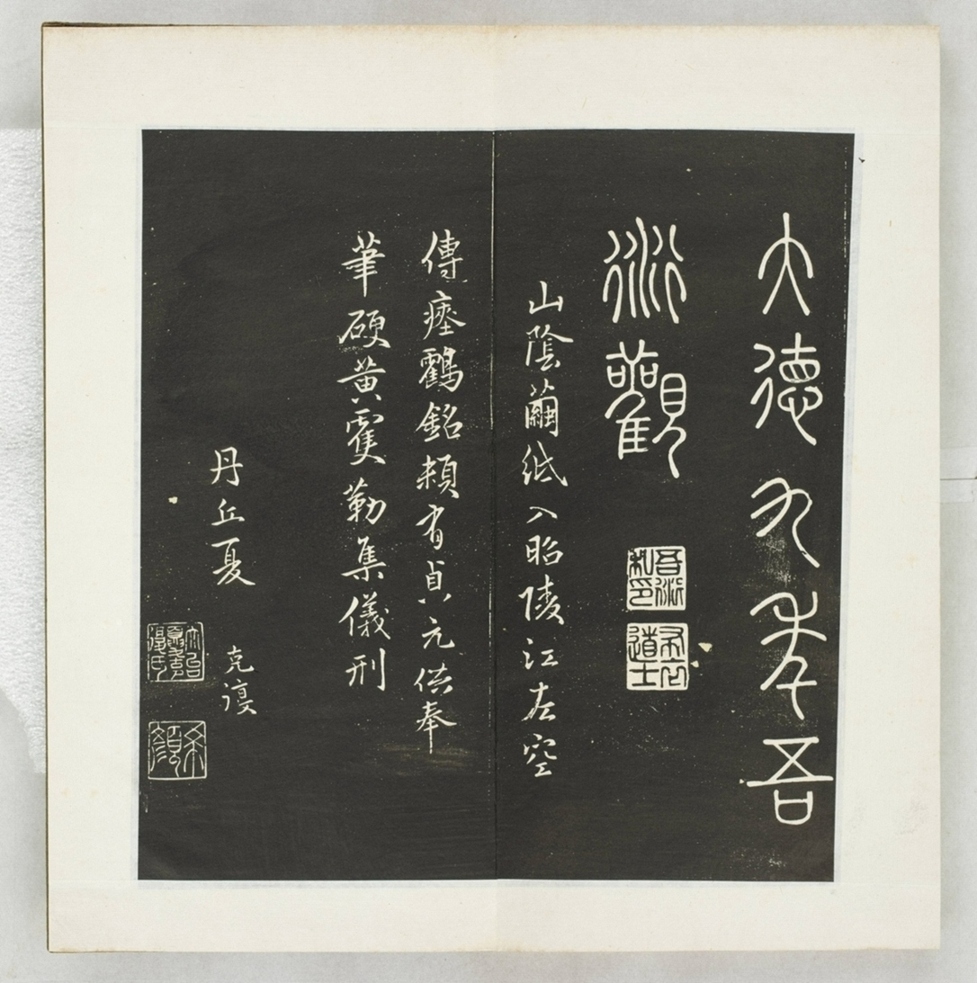 大德九年吾
衍觀
吾衍私印
山陰繭紙入昭陵江左空
傳瘞鶴銘賴有貞元供奉
筆硬黃雙勒集儀刑
丹丘夏
克復